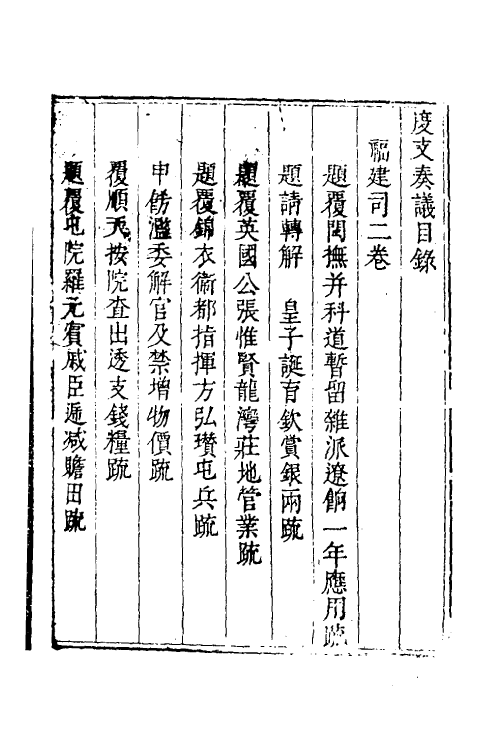 度支奏議目錄
福建司二卷
題覆閩撫并科道暫留雜派遼餉一年應用疏
題請轉解　皇子誕育欽賞銀兩疏
題覆英國公張惟賢龍灣莊地管業疏
題覆錦衣衛都指揮方弘瓚屯兵疏
申飭濫委解官及禁增物價疏
覆順天按院查出透支錢糧疏
題覆屯院羅元賓戚臣遞減贍田疏